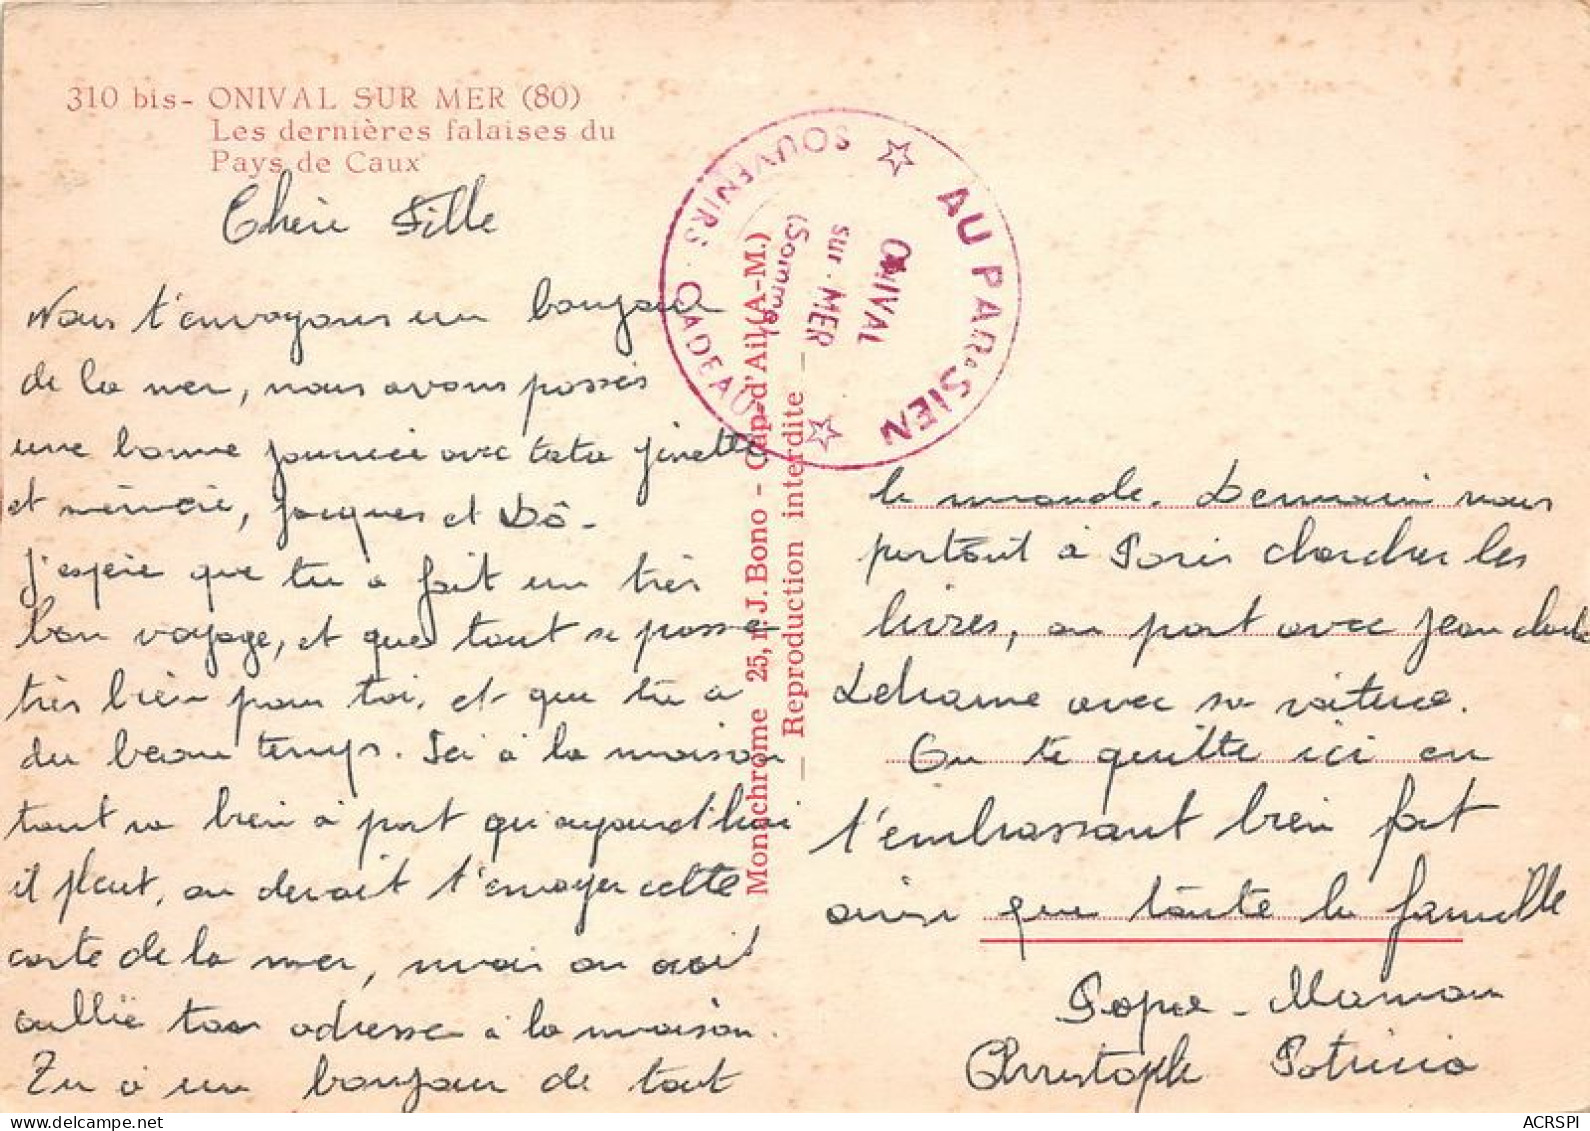 310 bis- ONIVAL SUR MER (80)
Les dernières falaises du
Pays de Caux
Chérie Fille
Nous t'envoyons un bonjour
de la mer, nous avons passés
une bonne journée avec tata ginette
et mémère, Jacques et Dô-
J'espère que tu a fait un très
bon voyage, et que tout se passe
très bien pour toi, et que tu a
du beau temps. Ici à la maison
tout va bien à part qu'aujourd'hui
il pleut, on devait t'envoyer cette
carte de la mer, mais on avait
oublié ton adresse à la maison.
Tu a un bonjour de tout
le monde. Demain nous
partont à Paris chercher les
livres, on part avec Jean
avec sa voiture.
On te quitte ici en
t'embrassant bien fort
ainsi que toute la famille
Papa - Maman
Christophe Patricia
AU PARISIEN
SOUVENIRS - CADEAUX
ONIVAL
sur-MER
(Somme)
Monachrome 25, r. J. Bono - Cap-d'Ail (A-M.)
— Reproduction interdite —
ACRSPI